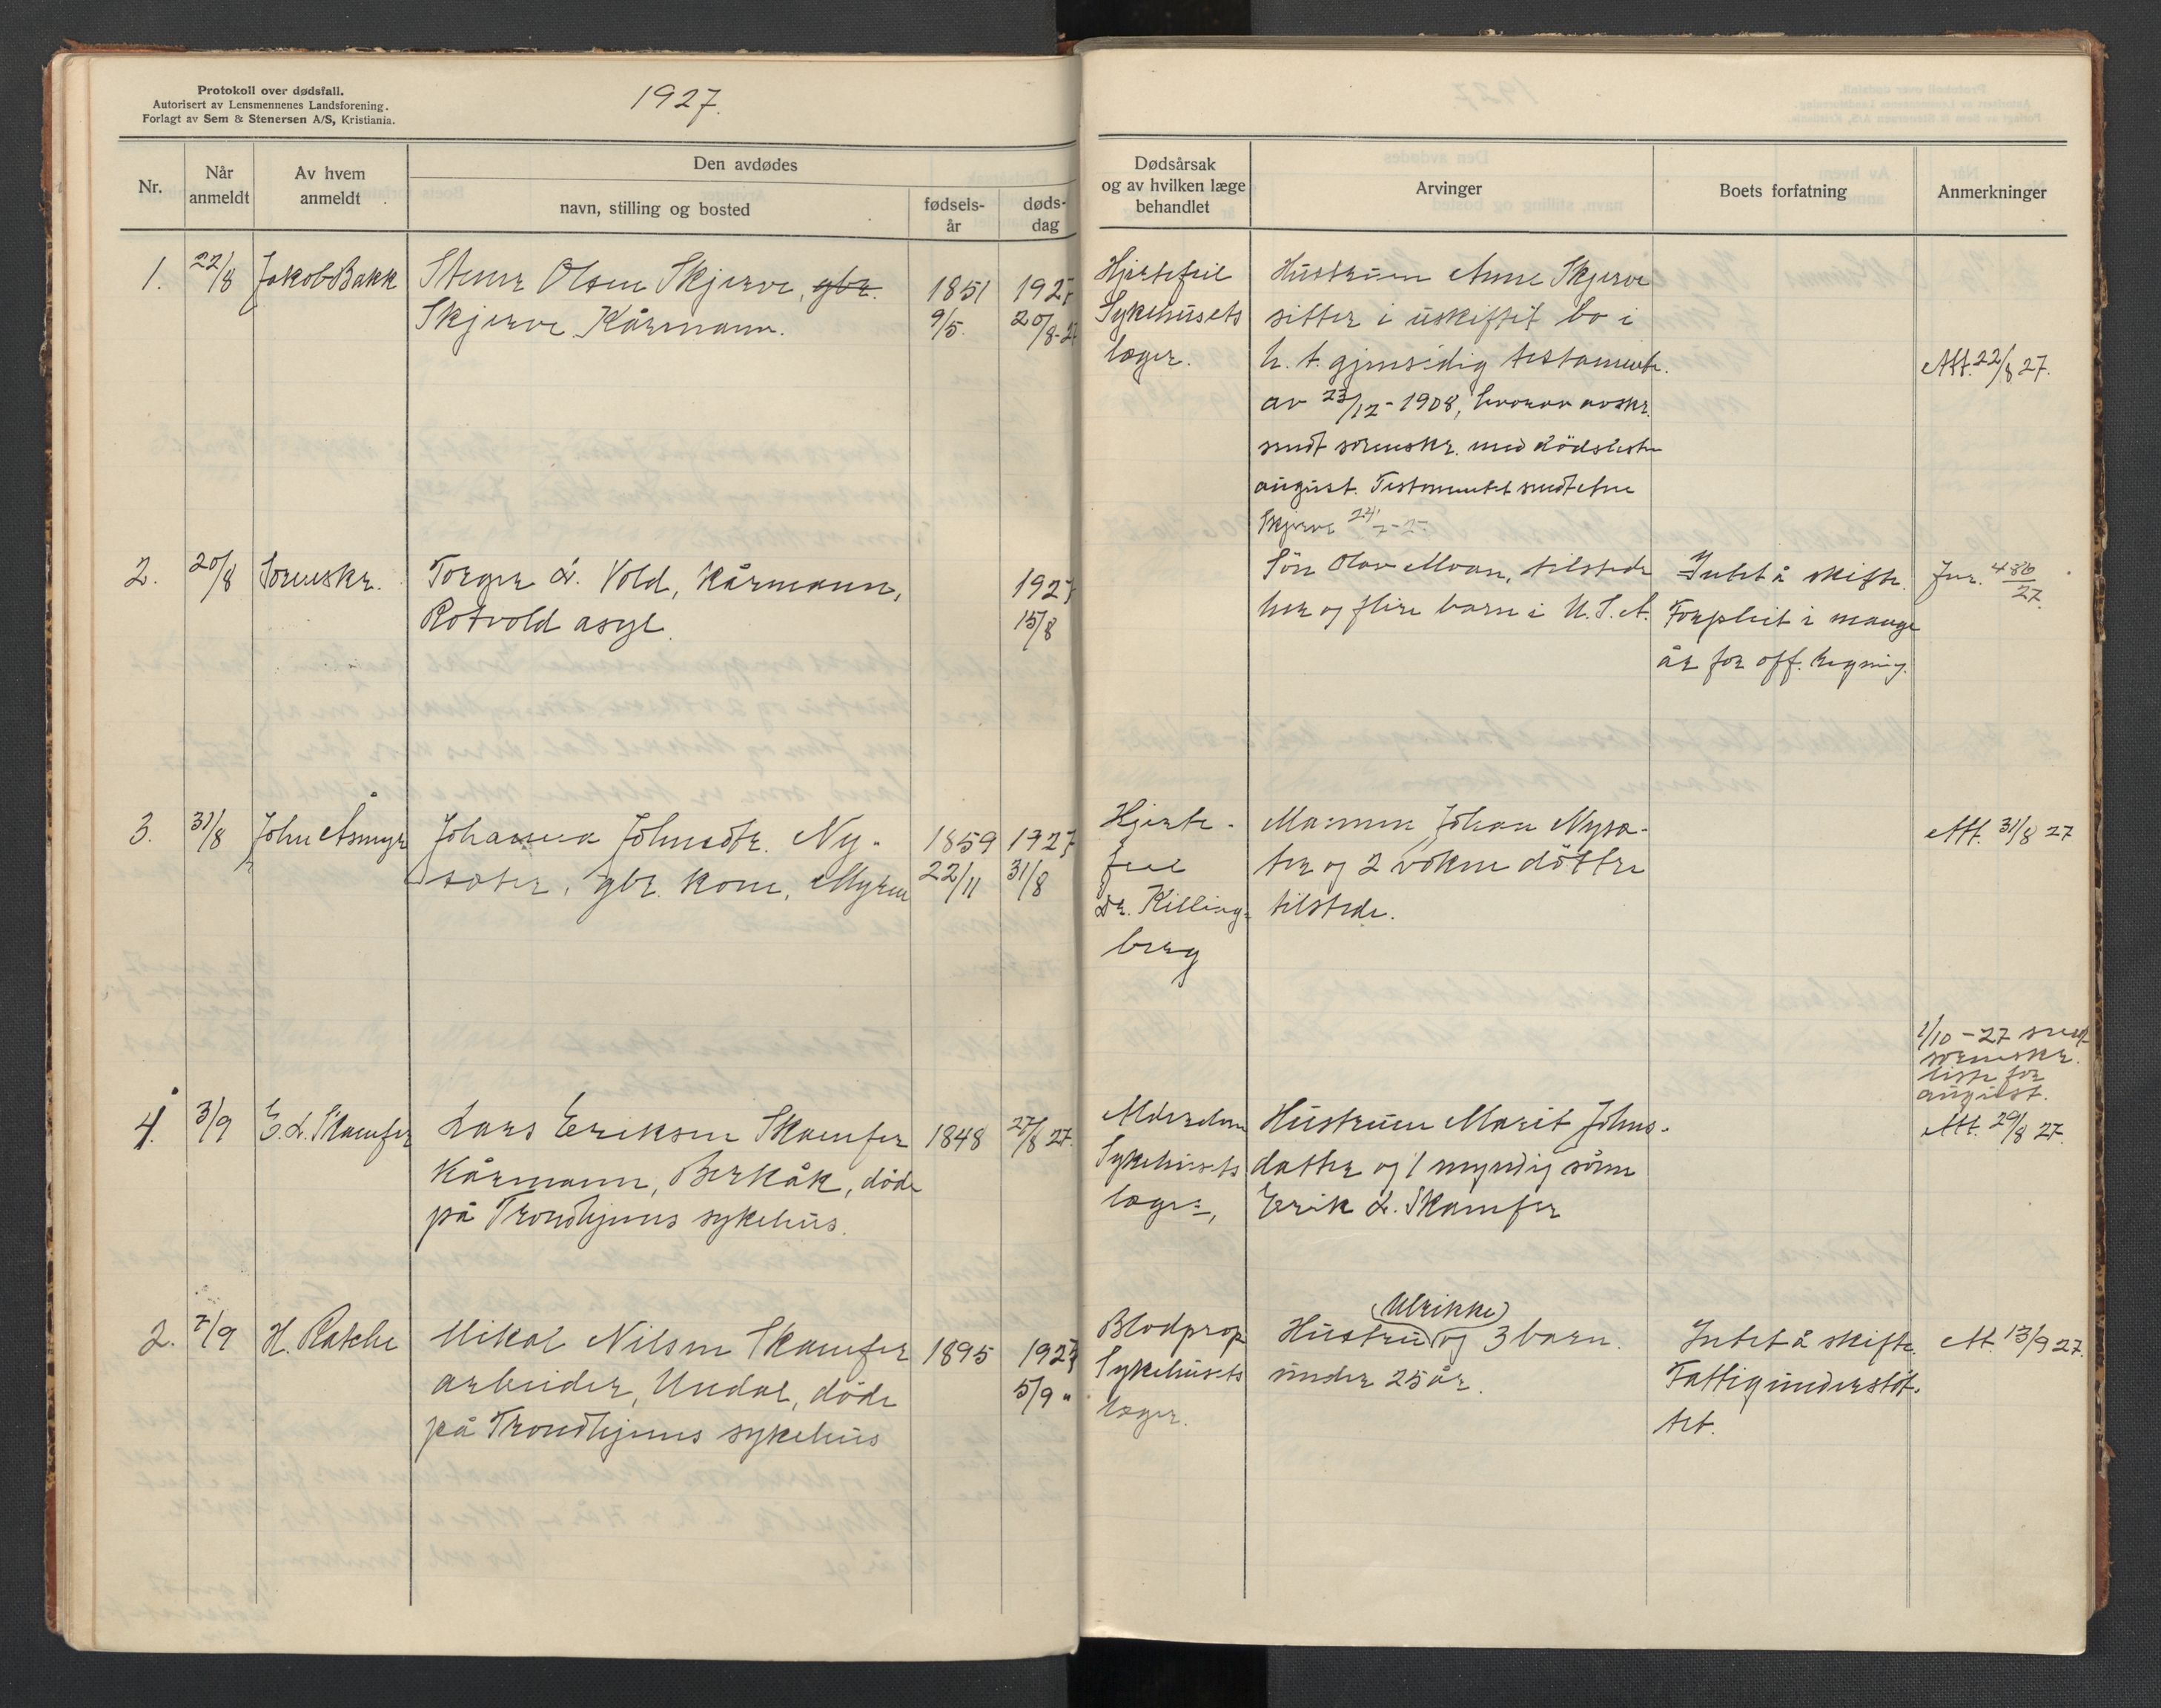 Protokoll over dødsfall.
Autorisert av Lensmennenes Landsforening.
Forlagt av Sem & Stenersen A/S, Kristiania.
1927.
Nr.
Når
anmeldt
Av hvem
anmeldt
Den avdødes
navn, stilling og bosted
fødsels-
år
døds-
dag
Dødsårsak
og av hvilken læge
behandlet
Arvinger
Boets forfatning
Anmerkninger
1.
22/8
Jakob Bakk
Olsen Skjerve, gbr.
Skjerve. Kårmann.
1851
9/5.
1927
20/8-27
Hjertefeil
Sykehusets
læger.
Hustruen Anne Skjerve
sitter i uskiftet bo i
h. t. gjensidig testamente
av 23/12-1908, hvorav avskr.
sendt sorenskr. med dödsliste
august. Testamentet sendt
Skjerve
Att. 22/8 27.
2.
20/8
Sorenskr.
Torger L. Vold, Kårmann,
Rotvold asyl.
1927
15/8
Sön Olav Moan, tilstede
her og flere barn i U.S.A.
Intet å skifte.
Forpleiet i mange
år for off. regning.
Jnr. 486
27.
3.
31/8
John Åsmyr
Johanna Johnsdtr. Ny-
sæter, gbr. kone, Myren
1859
22/11
1927
31/8
Hjerte-
feil
Dr. Killing-
berg
Mannen Johan Nysæ-
ter og 2 voksne döttre
tilstede.
Att. 31/8 27
1/10-27 sendt
sorenskr.
liste for
august.
4.
3/9
E. L. Skamfer
Lars Eriksen Skamfer
Kårmann, Berkåk, döde
på Trondhjems sykehus.
1848
27/8 27.
Alderdom
Sykehusets
læger,
Hustruen Marit Johns-
datter og 1 myndig sönn
Erik L. Skamfer
Att. 29/8 27.
2.
7/9
H. Ratche
Mikal Nilsen Skamfer
arbeider, Undal, döde
på Trondhjems sykehus
1895
1927
5/9 "
Blodprop
Sykehusets
læger.
(Ulrikke)
Hustru og 3 barn
under 25 år.
Intet å skifte.
Fattigunderstöt-
tet.
At. 13/9 27.